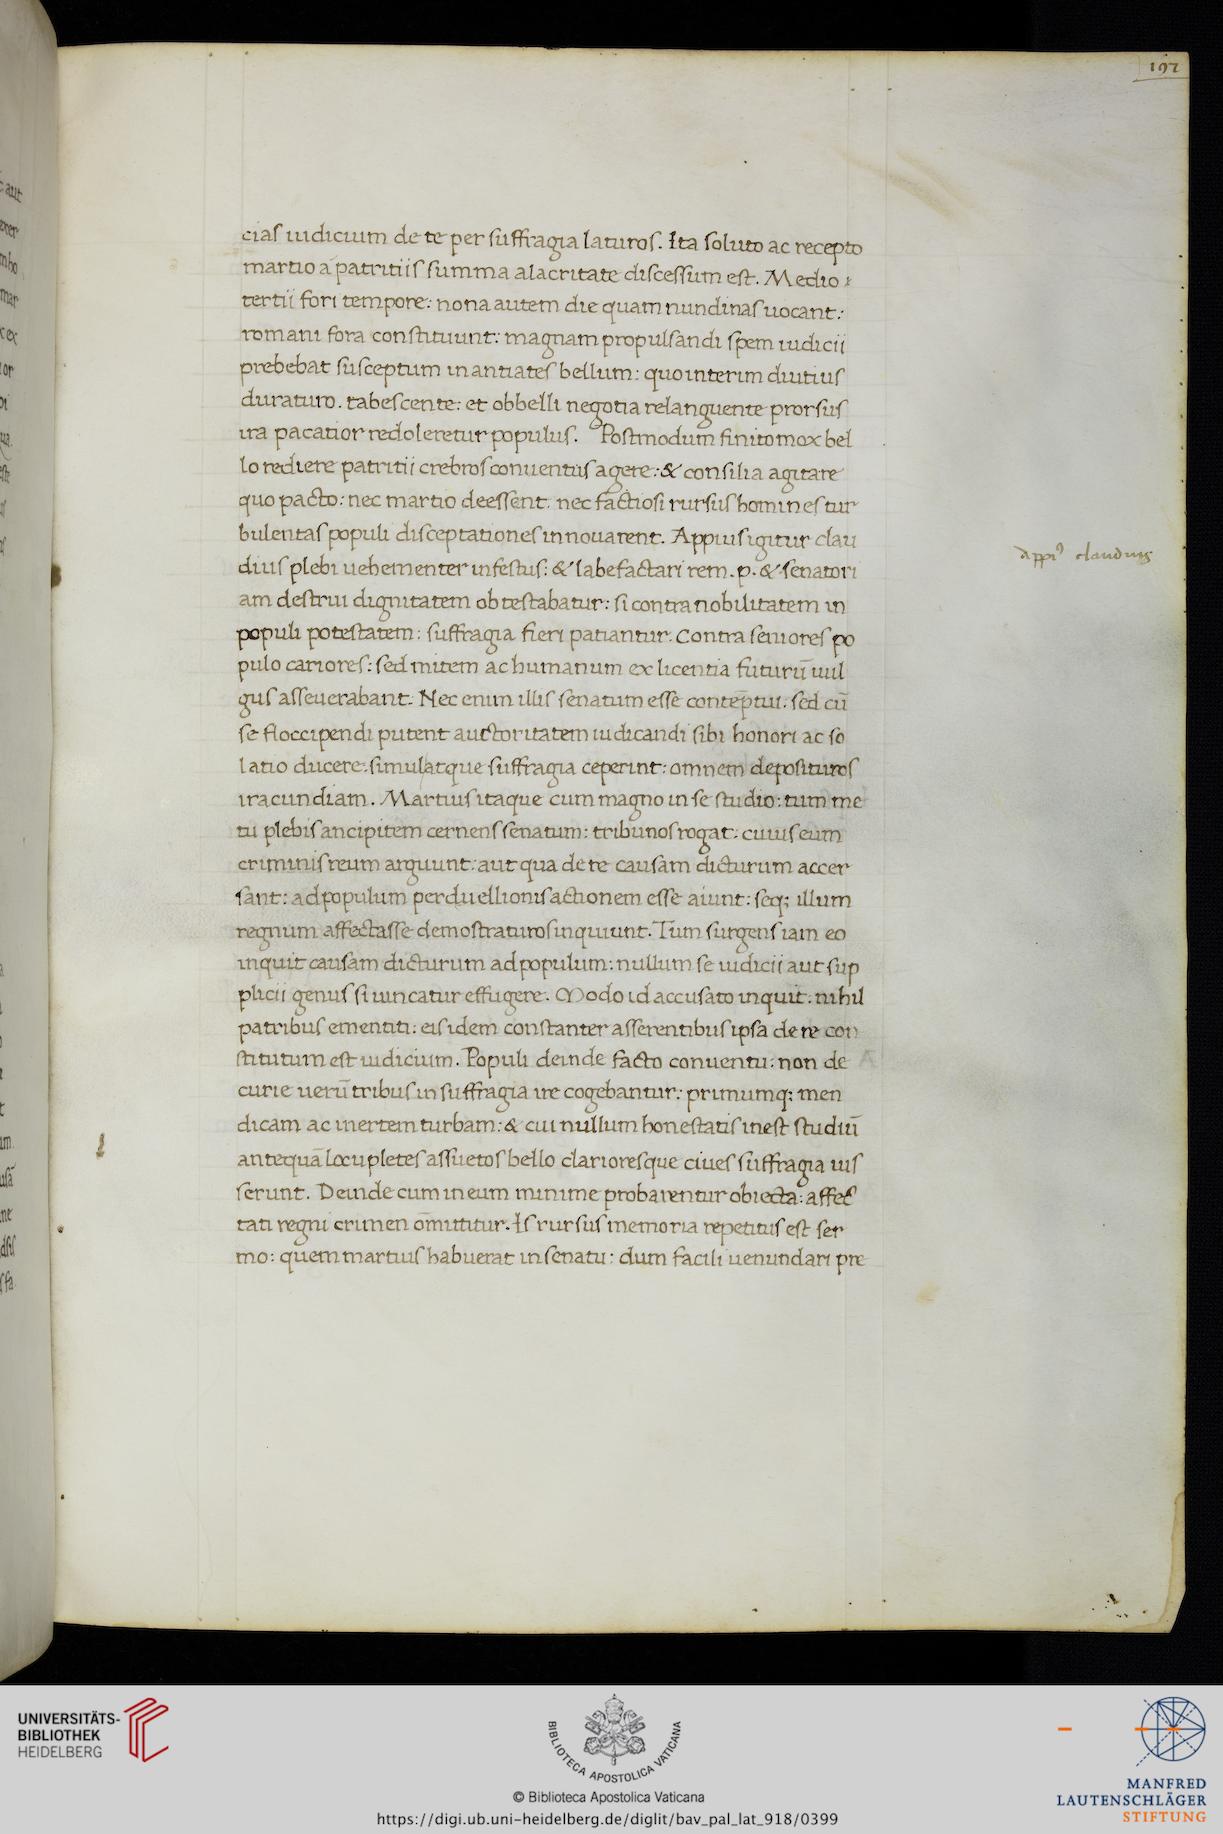 197
cias iudicium de te per suffragia laturos. Ita soluto ac recepto
martio a patritiis summa alacritate discessum est. Medio
tertii fori tempore: nona autem die quam nundinas uocant:
romani fora constituunt: magnam propulsandi spem iudicii
prebebat susceptum in antiates bellum: quo interim diutius
duraturo. tabescente: et ob belli negotia relanguente prorsus
ira pacatior redoleretur populus. Postmodum finito mox bel
lo rediere patritii crebros conuentus agere: & consilia agitare
quo pacto: nec martio deessent. nec factiosi rursus homines tur
bulentas populi disceptationes innouarent. Appius igitur clau
appiꝰ claudius
dius plebi uehementer infestus: & labefactari rem. p. & senatori
am destrui dignitatem obtestabatur: si contra nobilitatem in
populi potestatem: suffragia fieri patiantur. Contra seniores po
pulo cariores: sed mitem ac humanum ex licentia futurū uul
gus asseuerabant. Nec enim illis senatum esse contēptui. sed cū
se floccipendi putent auctoritatem iudicandi sibi honori ac so
latio ducere: simulatque suffragia ceperint: omnem deposituros
iracundiam. Martius itaque cum magno in se studio: tum me
tu plebis ancipitem cernens senatum: tribunos rogat: cuius eum
criminis reum arguunt: aut qua de re causam dicturum accer
sant: ad populum perduellionis actionem esse aiunt: seq; illum
regnum affectasse demostraturos inquiunt. Tum surgens iam eo
inquit causam dicturum ad populum: nullum se iudicii aut sup
plicii genus si uincatur effugere. Modo id accusato inquit: nihil
patribus ementiti: eis idem constanter asserentibus ipsa de re con
stitutum est iudicium. Populi deinde facto conuentu: non de
curie uerū tribus in suffragia ire cogebantur: primumq; men
dicam ac inertem turbam: & cui nullum honestatis inest studiū
antequā locupletes assuetos bello clarioresque ciues suffragia uis
serunt. Deinde cum in eum minime probarentur obiecta: affec
tati regni crimen omittitur. Is rursus memoria repetitus est ser
mo: quem martius habuerat in senatu: dum facili uenundari pre
UNIVERSITÄTS-
BIBLIOTHEK
HEIDELBERG
BIBLIOTECA APOSTOLICA VATICANA
© Biblioteca Apostolica Vaticana
https://digi.ub.uni-heidelberg.de/diglit/bav_pal_lat_918/0399
MANFRED
LAUTENSCHLÄGER
STIFTUNG